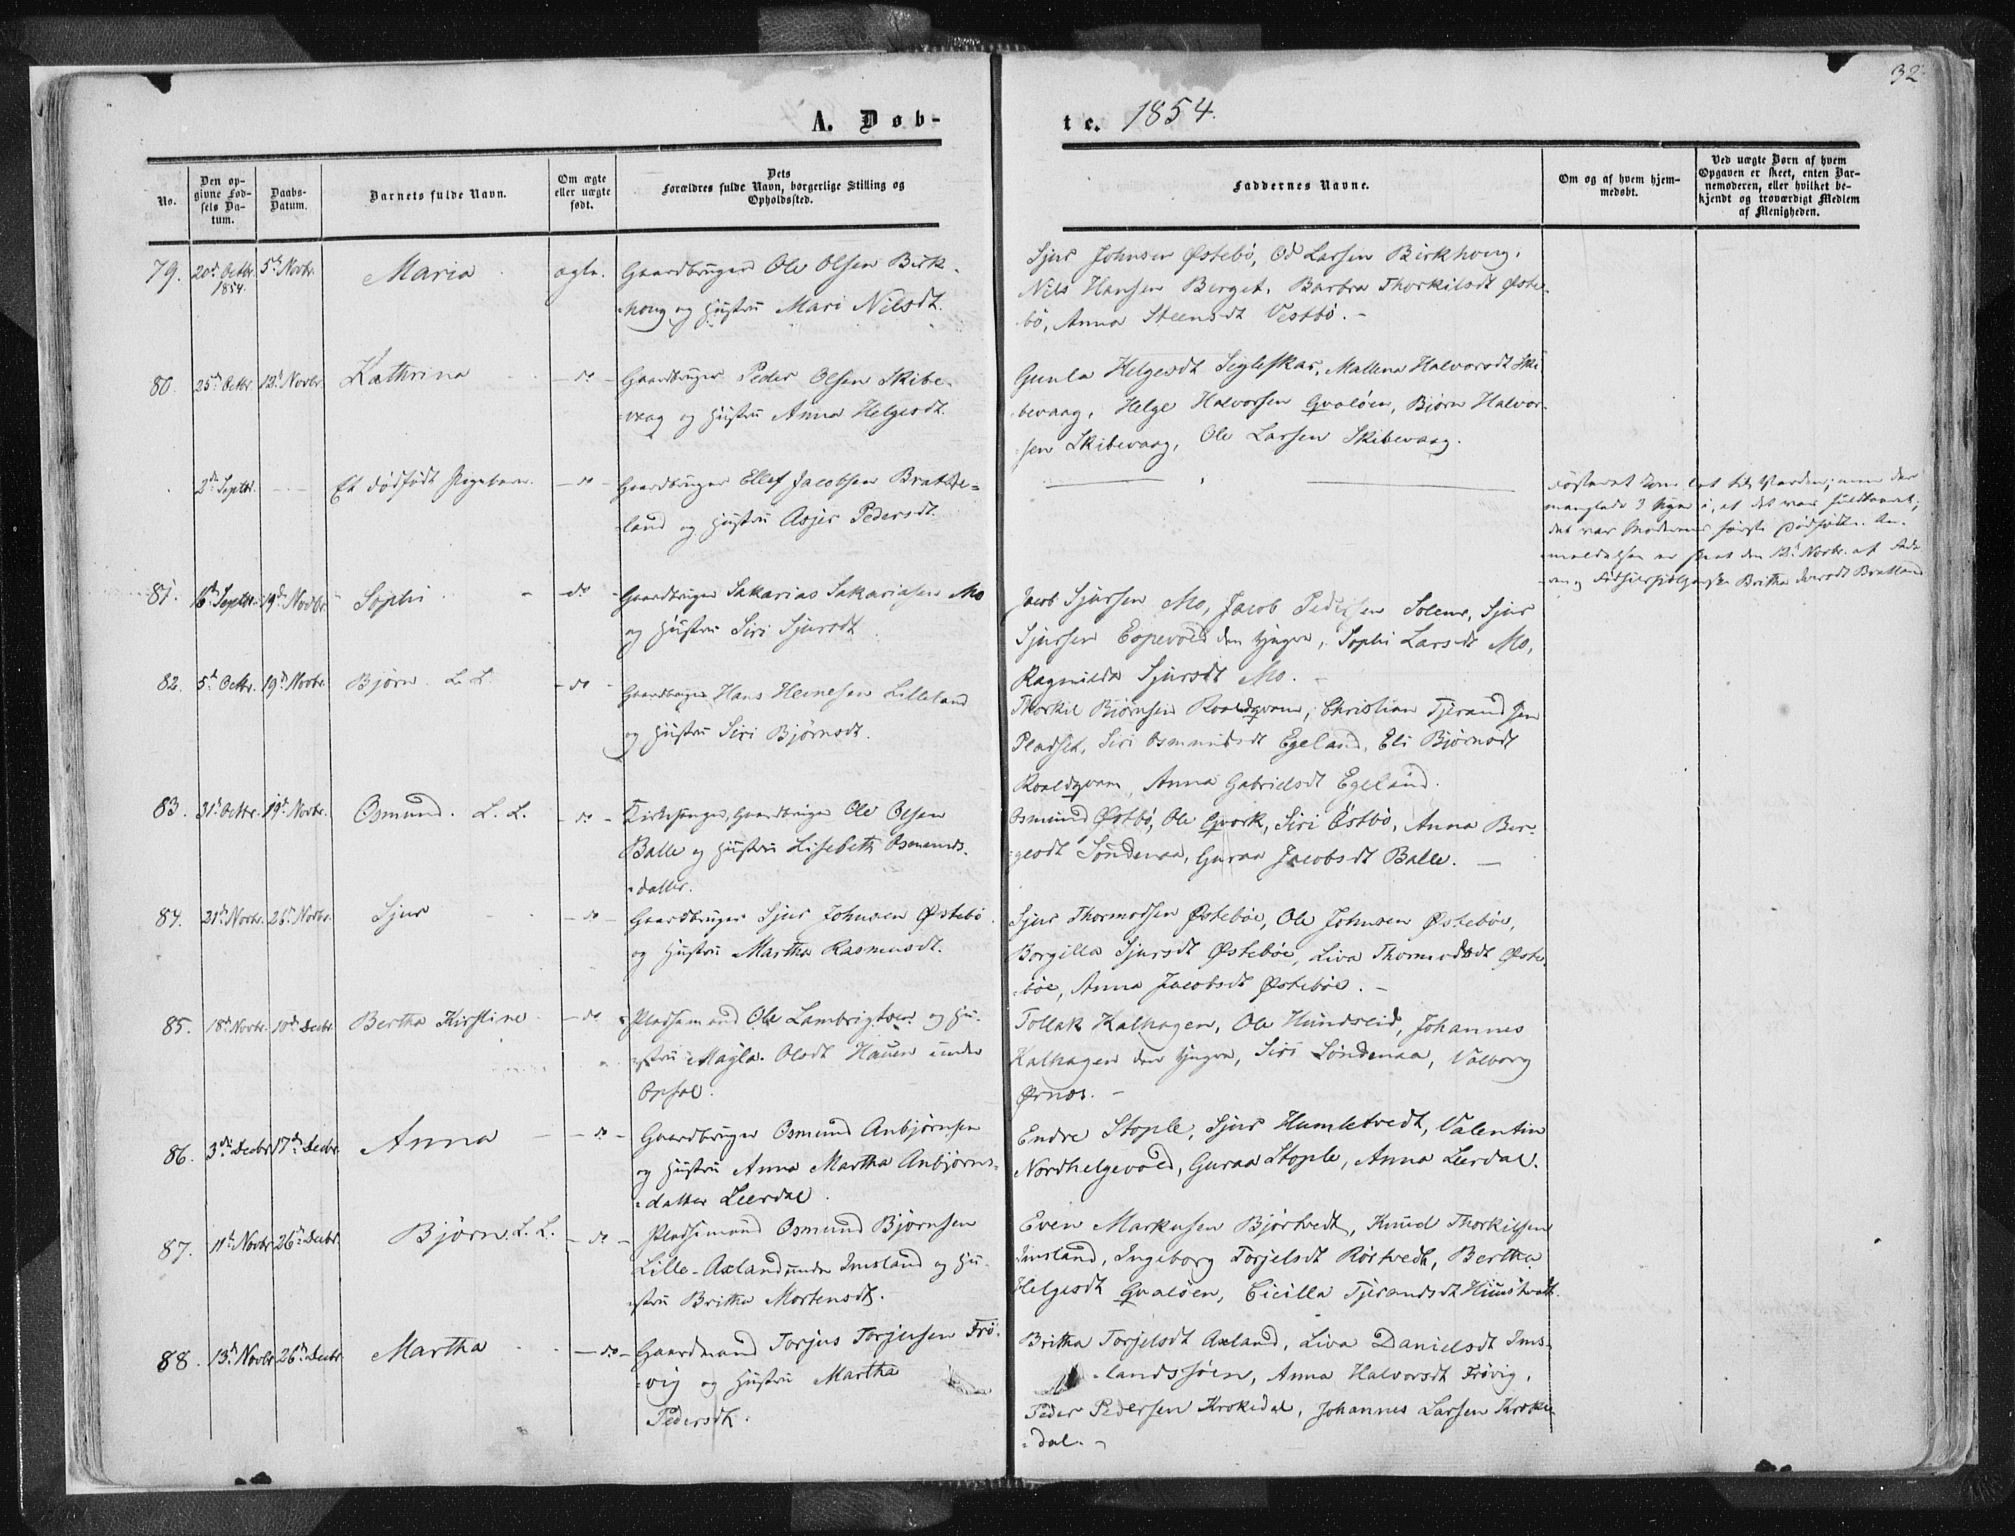 32
A. Døb-
te. 1854.
No.
Den opgivne Fødsels Datum.
Daabs-Datum.
Barnets fulde Navn.
Om ægte eller uægte født.
Dets Forældres fulde Navn, borgerlige Stilling og Opholdssted.
Faddernes Navne.
Om og af hvem hjemmedøbt.
Ved uægte Børn af hvem Opgaven er skeet, enten Barnemoderen, eller hvilket bekjendt og troværdigt Medlem af Menigheden.
79. 20de Octbr. 1854. 5te Novbr. Maria ægte. Gaardbruger Ole Olsen Birk-
houg og Hustru Mari Nilsdt.
Sjur Johnsen Østebö, Od Larsen Birkhoug,
Nils Hansen Berget, Barbra Thorkilsdt Øste-
bö, Anna Steensdt Vestbö. -
80. 25de Octbr. 12te Novbr. Kathrina do Gaardbruger Peder Olsen Skibe-
vaag og Hustru Anna Helgesdt.
Gunla Helgesdt Segleskar, Mallena Halvorsdt Ski-
bevaag, Helge Halvorsen Qvaløen, Biørn Halvor-
sen Skibevaag, Ole Larsen Skibevaag.
2den Septbr. Et dødfødt Pigebarn. do Gaardbruger Ellef Jacobsen Bratte-
land og Hustru Asjer Pedersdt.
manglede 3 Uger i, at det var fuldbaaret;
det var Moderens første Dødfødte. An-
meldelsen er skeet den 12te Novbr. af Fade-
ren og Britha Bratland
81. 16de Septbr. 19de Novbr. Sophi do Gaardbruger Sakarias Sakariasen Mo
og Hustru Siri Sjursdt
Jacob Sjursen Mo, Jacob Pedersen Solem, Sjur
Sjursen Eopevold den yngre, Sophi Larsdt Mo,
Ragnilda Sjursdt Mo. -
82. 5te Octbr. 19de Novbr. Bjørn L. L. do Gaardbruger Hans Heinesen Lilleland
og Hustru Siri Bjørnsdt.
Thorkil Biørnsen Roaldqvam, Christian Tjerandsen
Pladset, Siri Osmundsdt Egeland, Eli Bjørnsdt
Roaldqvam, Anna Gabrielsdt Egeland.
83. 31te Octbr. 19de Novbr. Osmund. L. L. do Kirkesanger, Gaardbruger Ole Olsen
Balle og Hustru Lisebeth Osmunds-
datter.
Osmund Østbö, Ole Qvark, Siri Østbö, Anna Ber-
gesdt Søndenaa, Guraa Jacobsdt Balle. -
84. 21de Novbr. 26de Novbr. Sjur do Gaardbruger Sjur Johnsen Østebö
og Hustru Martha Rasmusdt.
Sjur Thormodsen Østebøe, Ole Johnsen Østebøe,
Borgilla Sjursdt Østebøe, Liva Thormodsdt Øste-
bøe, Anna Jacobsdt Østebøe. -
85. 18de Novbr. 10de Decbr. Bertha Kirstine do Pladsemand Ole Lambrigtsen og Hu-
stru Magla Olsdt Hauen under
Opsal.
Tollak Kalhagen, Ole Hundseid, Johannes
Kalhagen den yngre, Siri Søndenaa, Valborg
Ørnes. -
86. 3die Decbr. 17de Decbr. Anna do Gaardbruger Osmund Anbjørnsen
og Hustru Anna Martha Anbjørns-
datter Leerdal.
Endre Stople, Sjur Humletvedt, Valentin
Nordhelgevold, Guraa Stople, Anna Leerdal.
87. 11te Novbr. 26de Decbr. Bjørn L. L. do Pladsemand Osmund Bjørnsen
Lille-Axland under Imsland og Hu-
stru Britha Mortensdt.
Even Markusen Bjørtvedt, Knud Thorkilsen
Imsland, Ingeborg Torjelsdt Røstvedt, Bertha
Helgesdt Qvaløen, Cicilla Tjerandsdt
88. 13de Novbr. 26de Decbr. Martha do Gaardmand Torjus Torjusen Frö-
vig og Hustru Martha
Pedersdt.
Britha Torjelsdt Axland, Liva Danielsdt Ims-
landssøen, Anna Halvorsdt Frövig,
Peder Pedersen Krokedal, Johannes Larsen Kroke-
dal. -